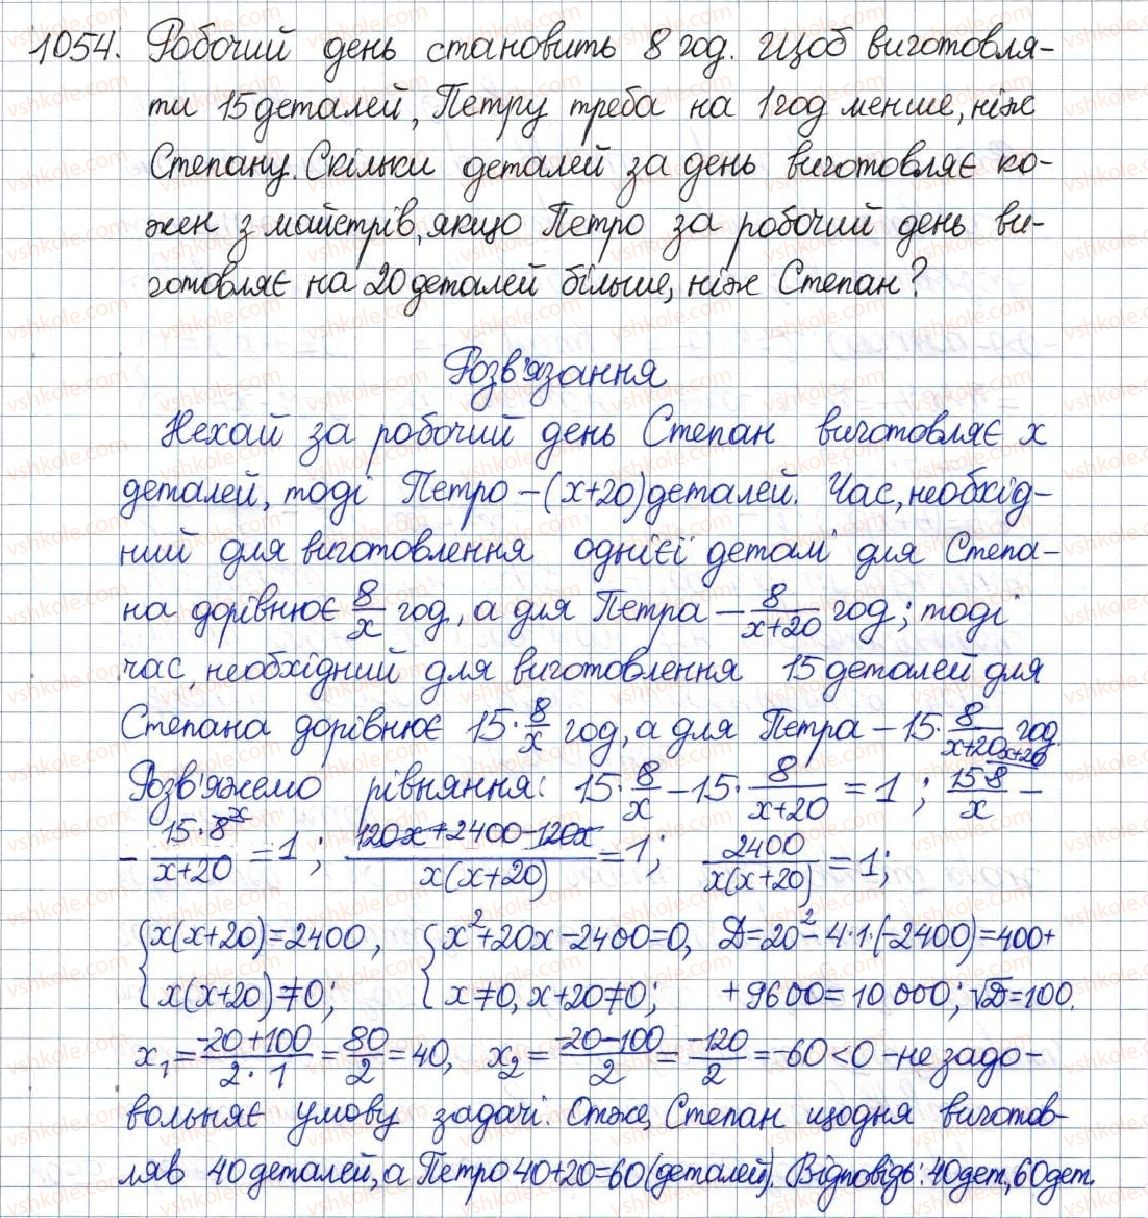 1054. Робочий день становить 8 год. Щоб виготовля-
ти 15 деталей, Петру треба на 1 год менше, ніж
Степану. Скільки деталей за день виготовляє ко-
жен з майстрів, якщо Петро за робочий день ви-
готовляє на 20 деталей більше, ніж Степан?
Розв'язання
Нехай за робочий день Степан виготовляє x
деталей, тоді Петро – (x+20) деталей. Час, необхід-
ний для виготовлення однієї деталі для Степа-
на дорівнює 8/x год, а для Петра – 8/(x+20) год; тоді
час, необхідний для виготовлення 15 деталей для
Степана дорівнює 15·8/x год, а для Петра – 15·8/(x+20) год.
Розв'яжемо рівняння: 15·8/x – 15·8/(x+20) = 1; 15·8^(x+20)/x –
– 15·8^x/(x+20) = 1; (120x+2400–120x)/(x(x+20)) = 1; 2400/(x(x+20)) = 1;
{x(x+20)=2400, {x²+20x–2400=0, D=20²–4·1·(–2400)=400+
x(x+20)≠0; x≠0, x+20≠0; +9600=10 000; √D=100.
x₁ = (–20+100)/(2·1) = 80/2 = 40, x₂ = (–20–100)/2 = –120/2 = –60 < 0 – не задо-
вольняє умову задачі. Отже, Степан щодня виготов-
ляв 40 деталей, а Петро 40+20=60 (деталей). Відповідь: 40 дет, 60 дет.
vshkole.com